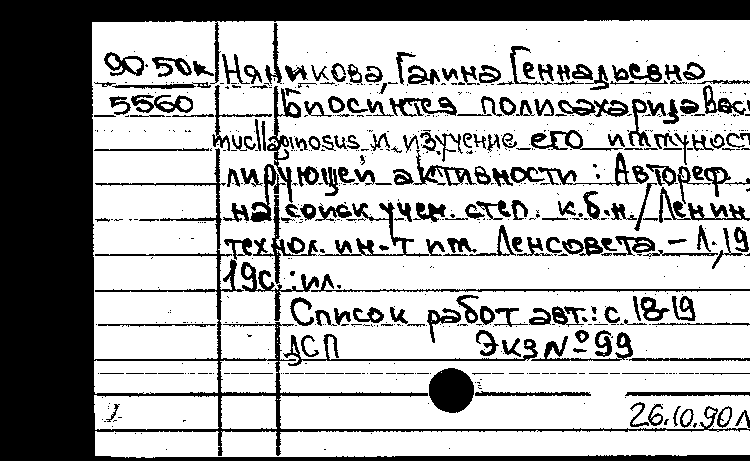 90-50к Няникова, Галина Геннадьевна
5560 Биосинтез полисахарида Baci
mucilaginosus и изучение его иммуност
лирующей активности : Автореф.
на соиск. учен. степ. к.б.н. / Ленин
технол. ин-т им. Ленсовета. – Л., 19
19с. : ил.
Список работ авт.: с. 18-19
ДСП Экз № 99
26.10.90